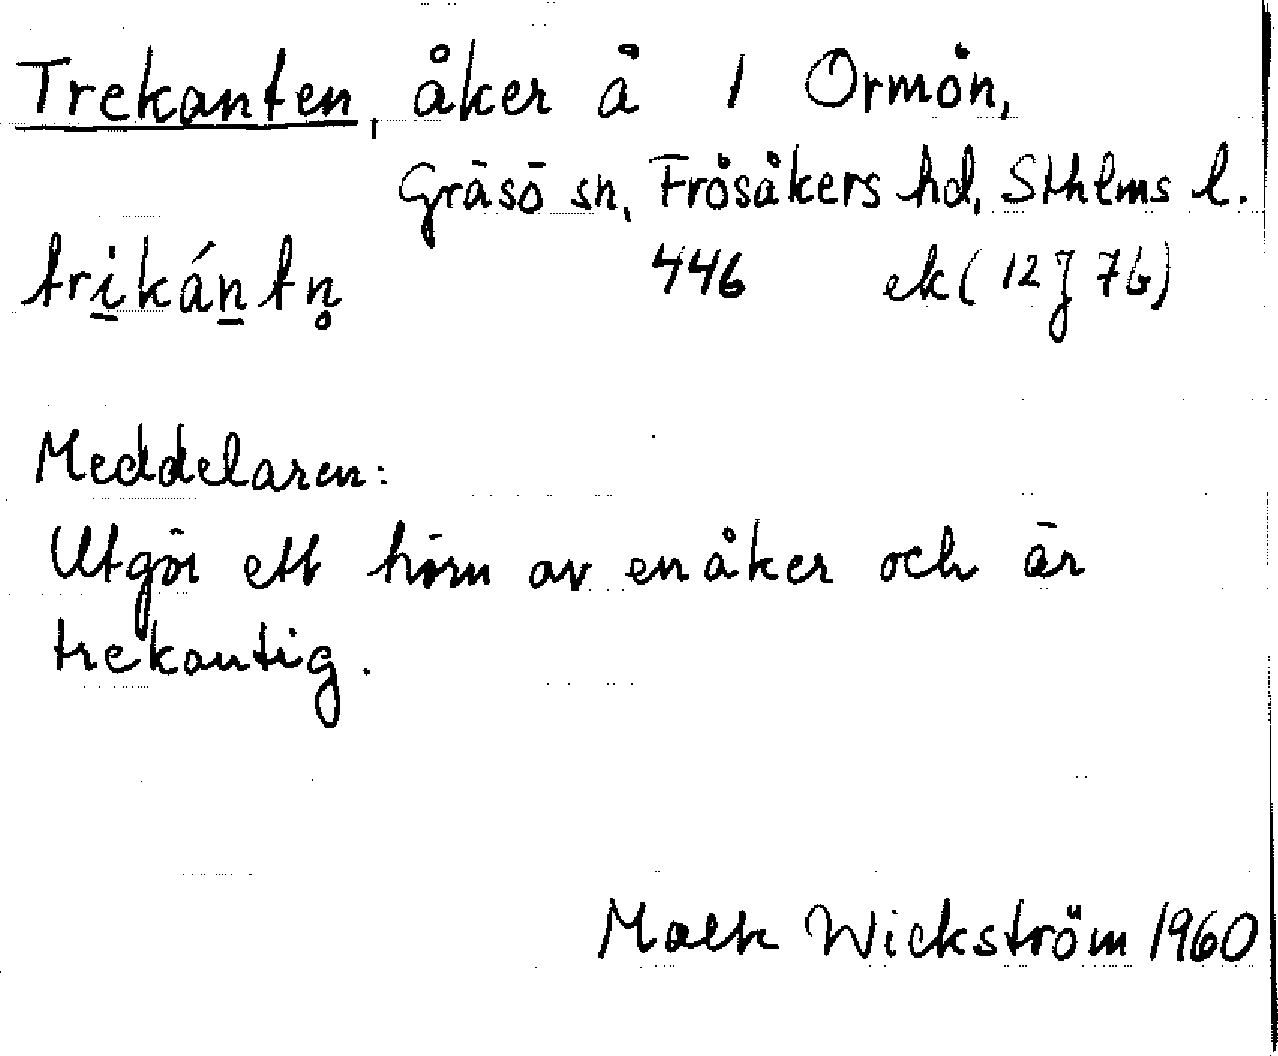 Trekanten, åker å 1 Ormön,
Gräsö sn, Frösåkers hd, Sthlms l.
tri̠kán̠tn̥ 446 ek (12J 7b)
Meddelaren:
Utgör ett hörn av en åker och är
trekantig.
Wickström 1960